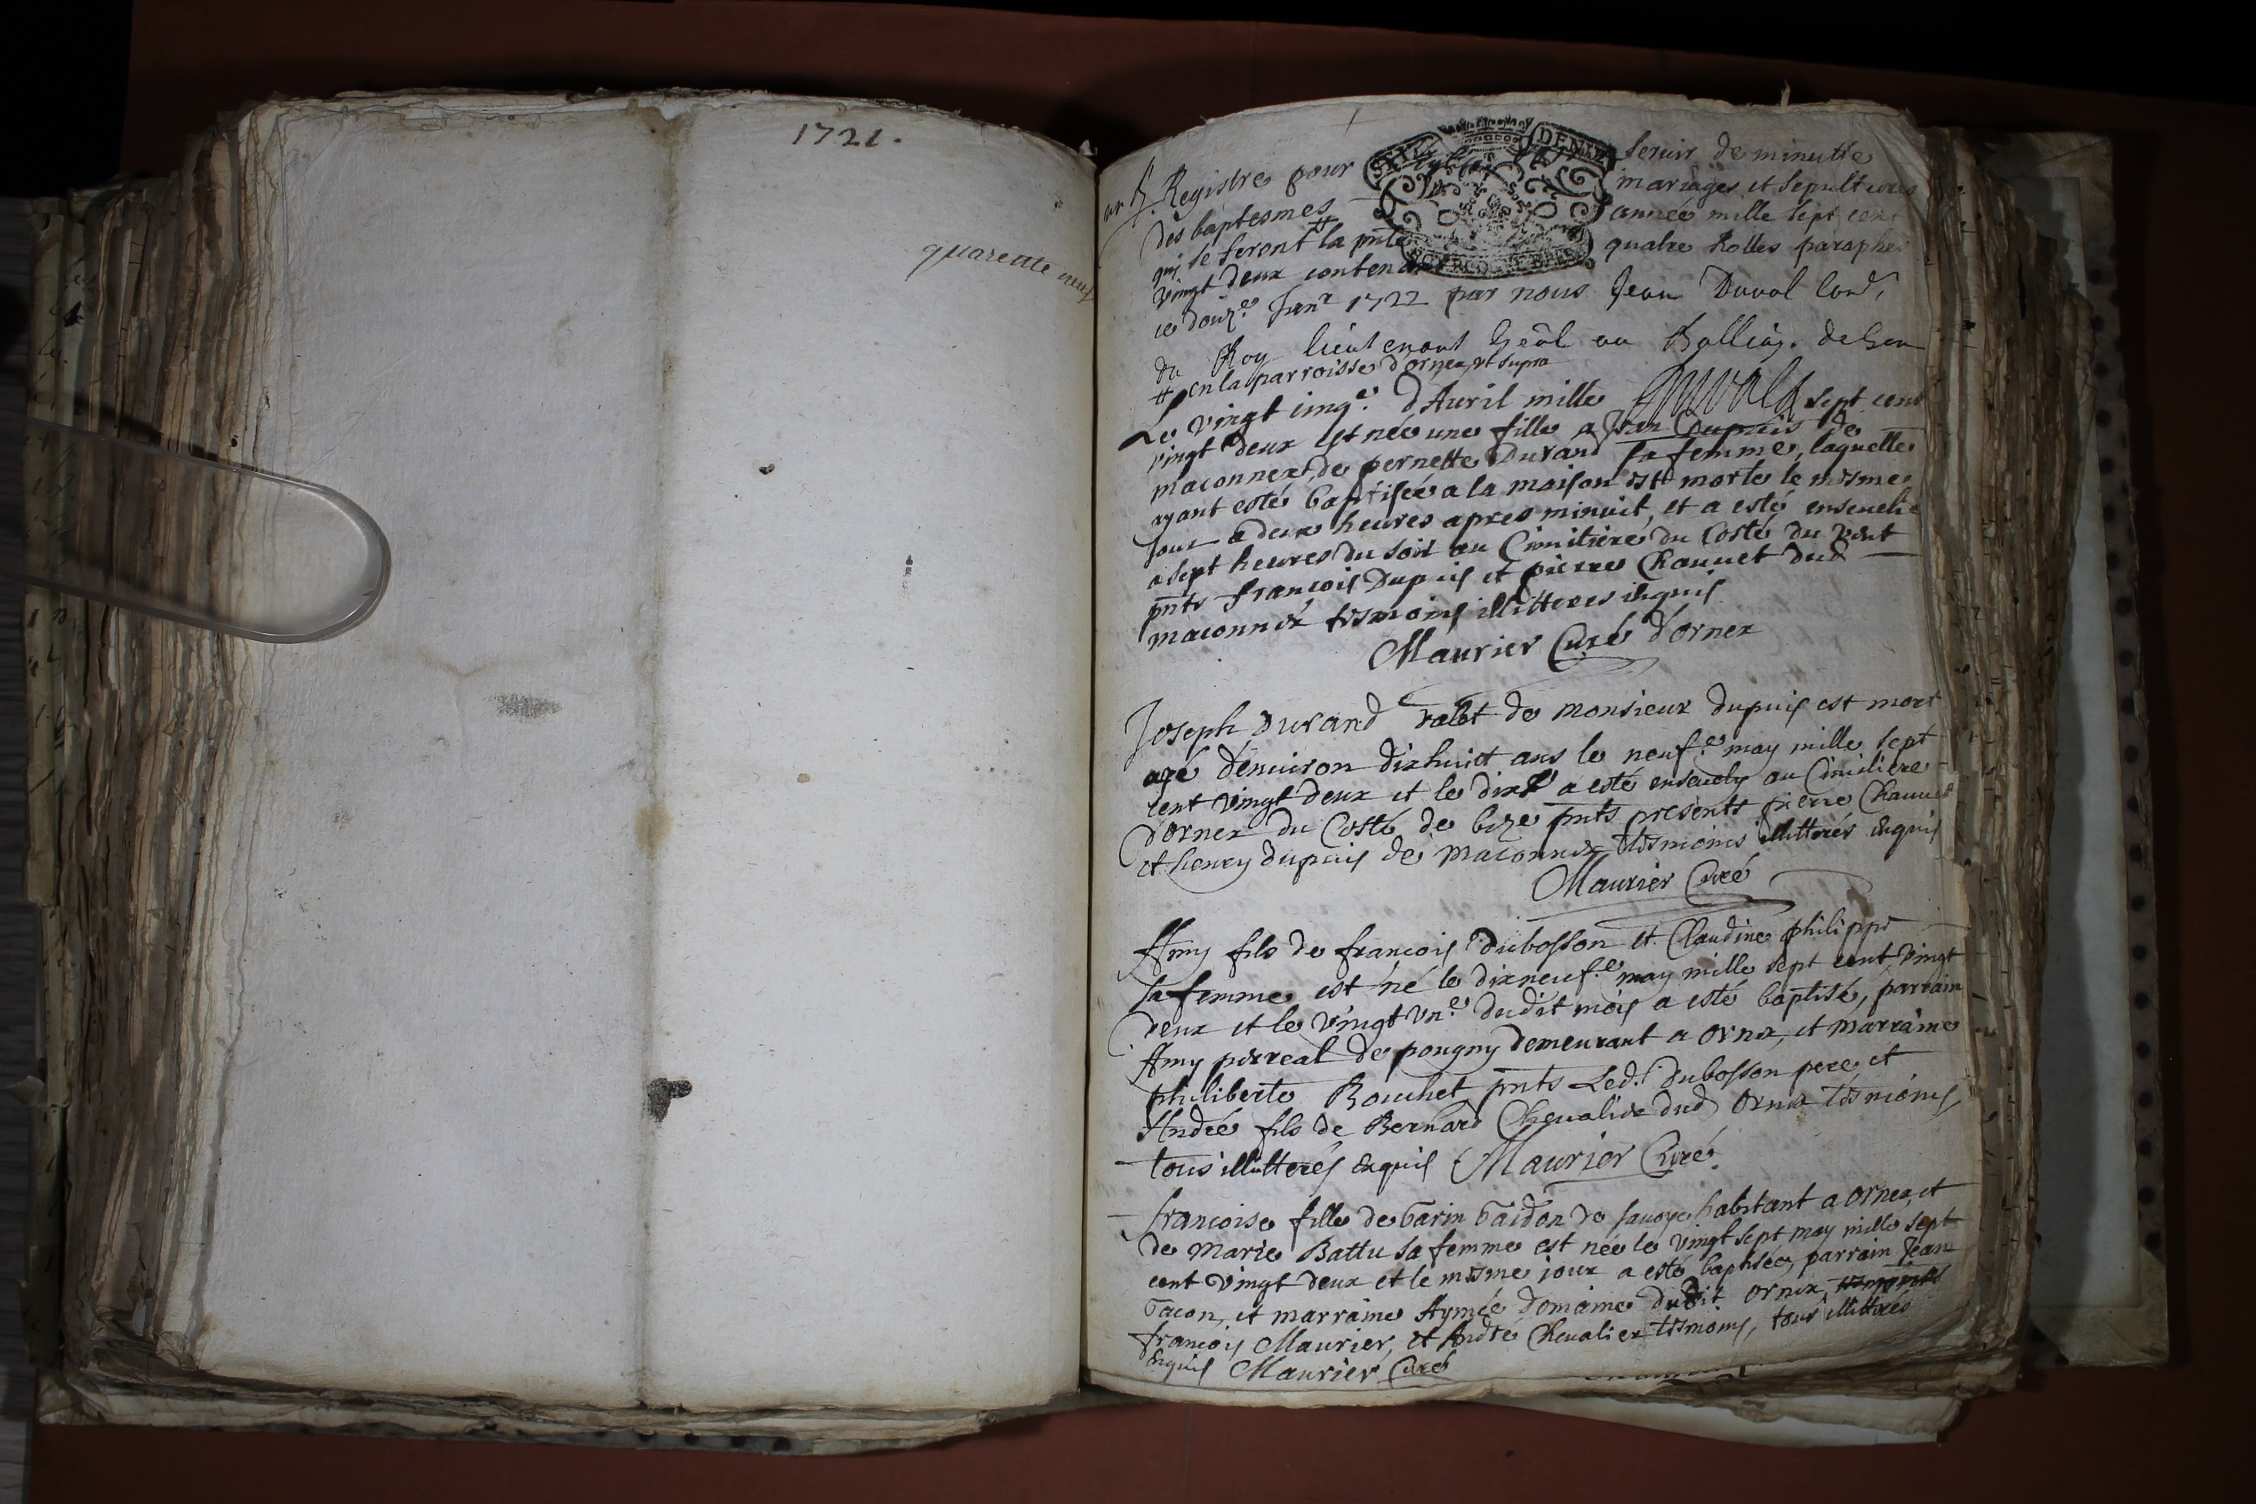 1721.
quarente neuf
Registre pour servir de minutte
des baptesmes mariages et sepultures
qui se feront # la pnte année mille sept cent
vingt deux contenant quatre Rolles paraphés
ce douze. Janr 1722 par nous Jean Duval Cons.
du Roy lieutenant gēal au Balliag. de Gex
# en la parroisse d'ornex, vt supra
Duval
Le vingt cinqe. d'Auril mille sept cent
vingt deux est née une fille a Jean Dupuis de
maconnex, de pernette Durand sa femme, laquelle
ayant esté baptisée a la maison est morte le mesme
jour a deux heures apres minuit, et a esté enseuelie
a sept heures du soir au Cimitiere du Costé du vent
pnts françois Dupuis et pierre Chauuet dud
maconnex tesmoins illitteres enquis
Maurier Curé d'ornex
Joseph Durand valet de monsieur dupuis est mort
agé d'enuiron dixhuict ans le neuf.e may mille sept
cent vingt deux et le dixe a esté enseuely au Cimitiere
d'ornex du Costé de bize pnts presents pierre Chauuet
et henry dupuis de maconnex tesmoins illitterés enquis
Maurier Curé
Amy fils de françois dubosson et Claudine philippe
sa femme est né le dixneuf.e may mille sept cent vingt
deux et le vingt vn.e dudit mois a esté baptisé, parrain
Amy perreal de pougny demeurant a ornex, et marraine
philiberte Bouchet pnts Led.t dubosson pere et
André fils de Bernard Cheualier dud ornex tesmoins,
tous illitterés enquis Maurier Curé.
françoise fille de de sauoye habitant a ornex, et
de Marie Battu sa femme est née le vingt sept may mille sept
cent vingt deux et le mesme jour a esté baptisée, parrain Jean
Tacon, et marraine Aymée Domaine dudit ornex, tesmoins
françois Maurier, et André Cheualier tesmoins, tous illitterés
enquis Maurier Curé